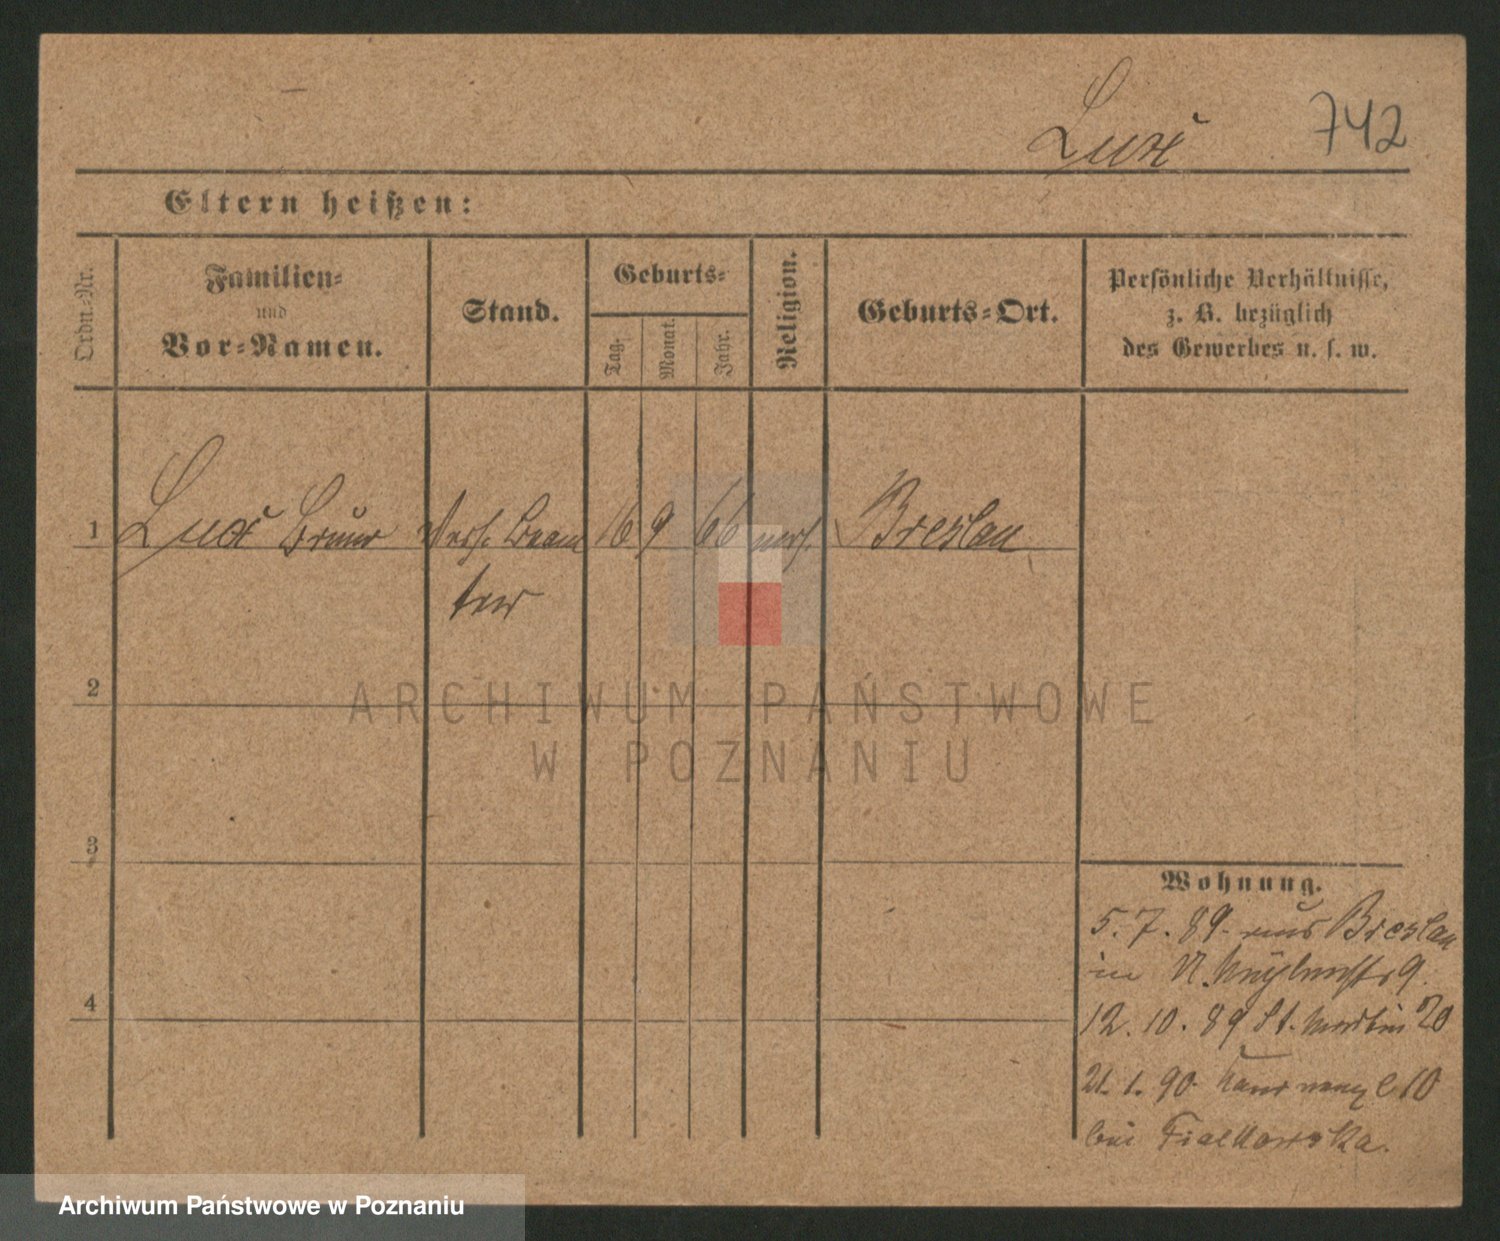 Lux 742
Eltern heißen:
Ordn.-Nr.
Familien-
und
Vor-Namen.
Stand.
Geburts-
Tag.
Monat.
Jahr.
Religion.
Geburts-Ort.
Persönliche Verhältnisse,
z. B. bezüglich
des Gewerbes u. s. w.
1 Lux Bruno Vers. Beam 16 9 66 Breslau
ter
2
3
4
Wohnung.
5. 7. 89. aus Breslau
in 9.
12. 10. 89 St. Martin 20
21. 1. 90. 10
bei Fialkowska.
ARCHIWUM PAŃSTWOWE
W POZNANIU
Archiwum Państwowe w Poznaniu